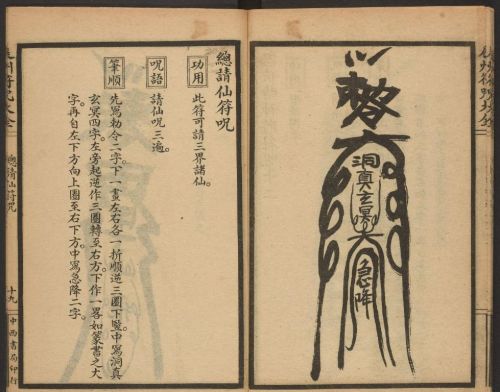 勅令
洞真玄冥
急降
總請仙符咒
功用 此符可請三界諸仙。
咒語 請仙咒三遍。
筆順 先寫勅令二字。下一畫左右各一折順逆三圈下豎中寫洞真
玄冥四字。左旁起逆作三圈轉至右方。下作一畧如篆書之大
字。再自左下方向上圈至右下方。中寫急降二字。
總請仙符咒
十九
中西書局印行